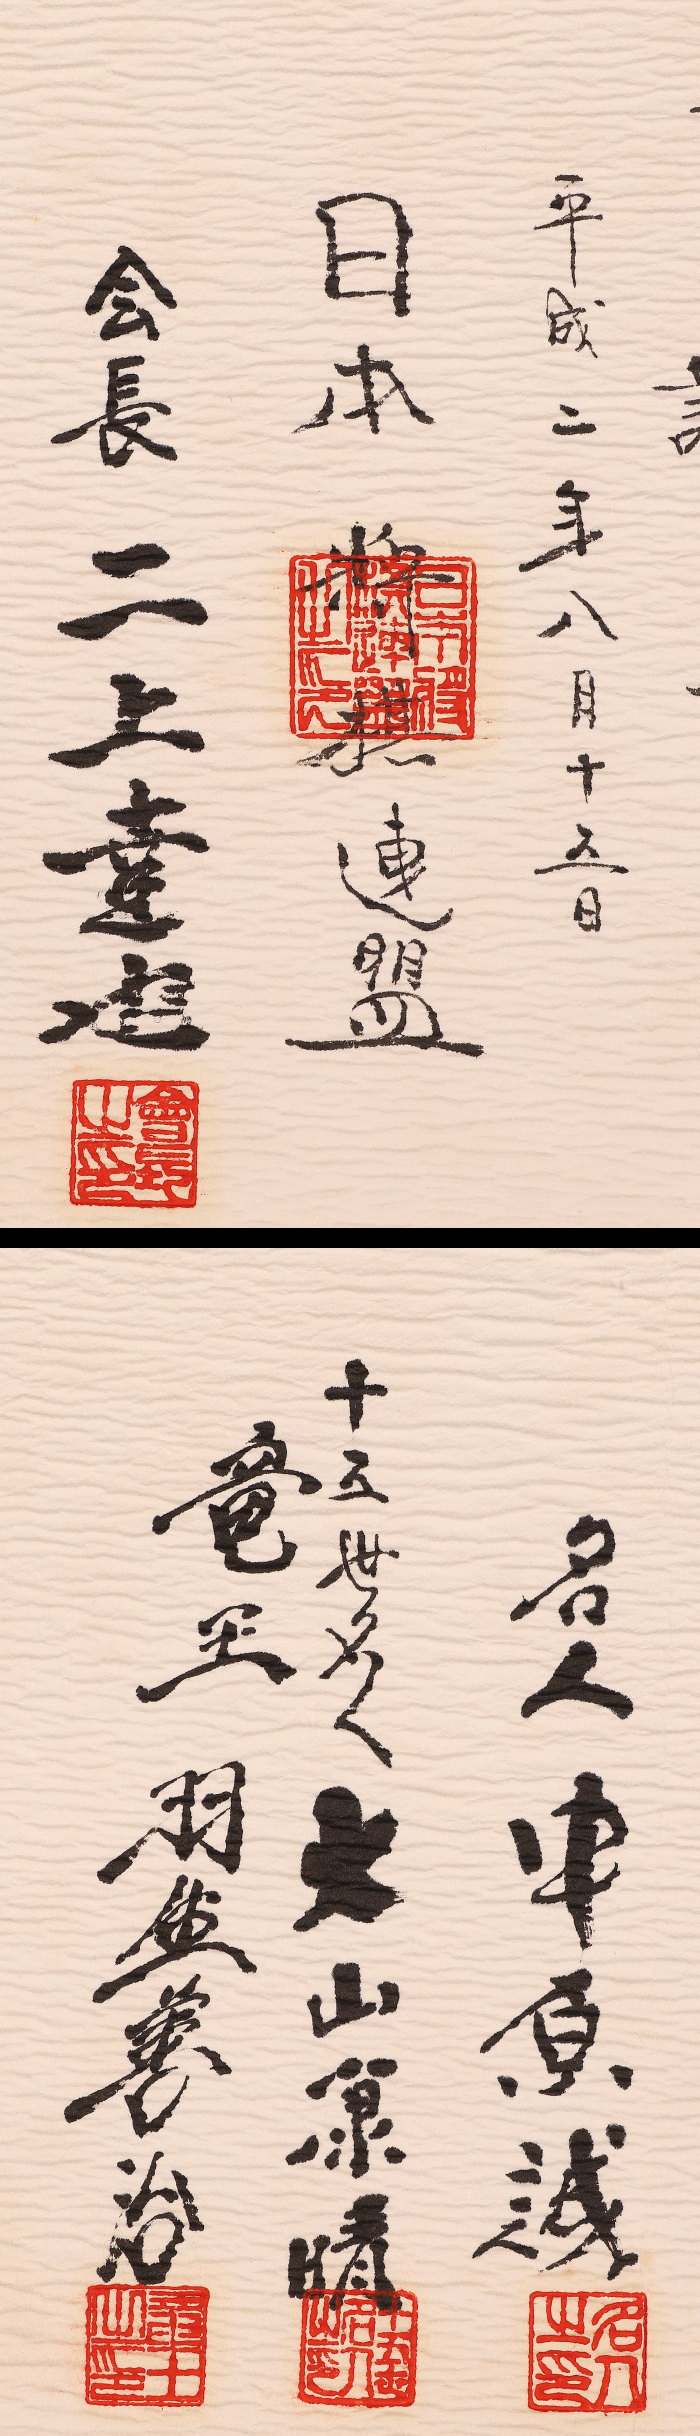 平成二年八月十五日
日本将棋連盟
会長 二上達也
名人 中原誠
十五世名人 大山康晴
竜王 羽生善治